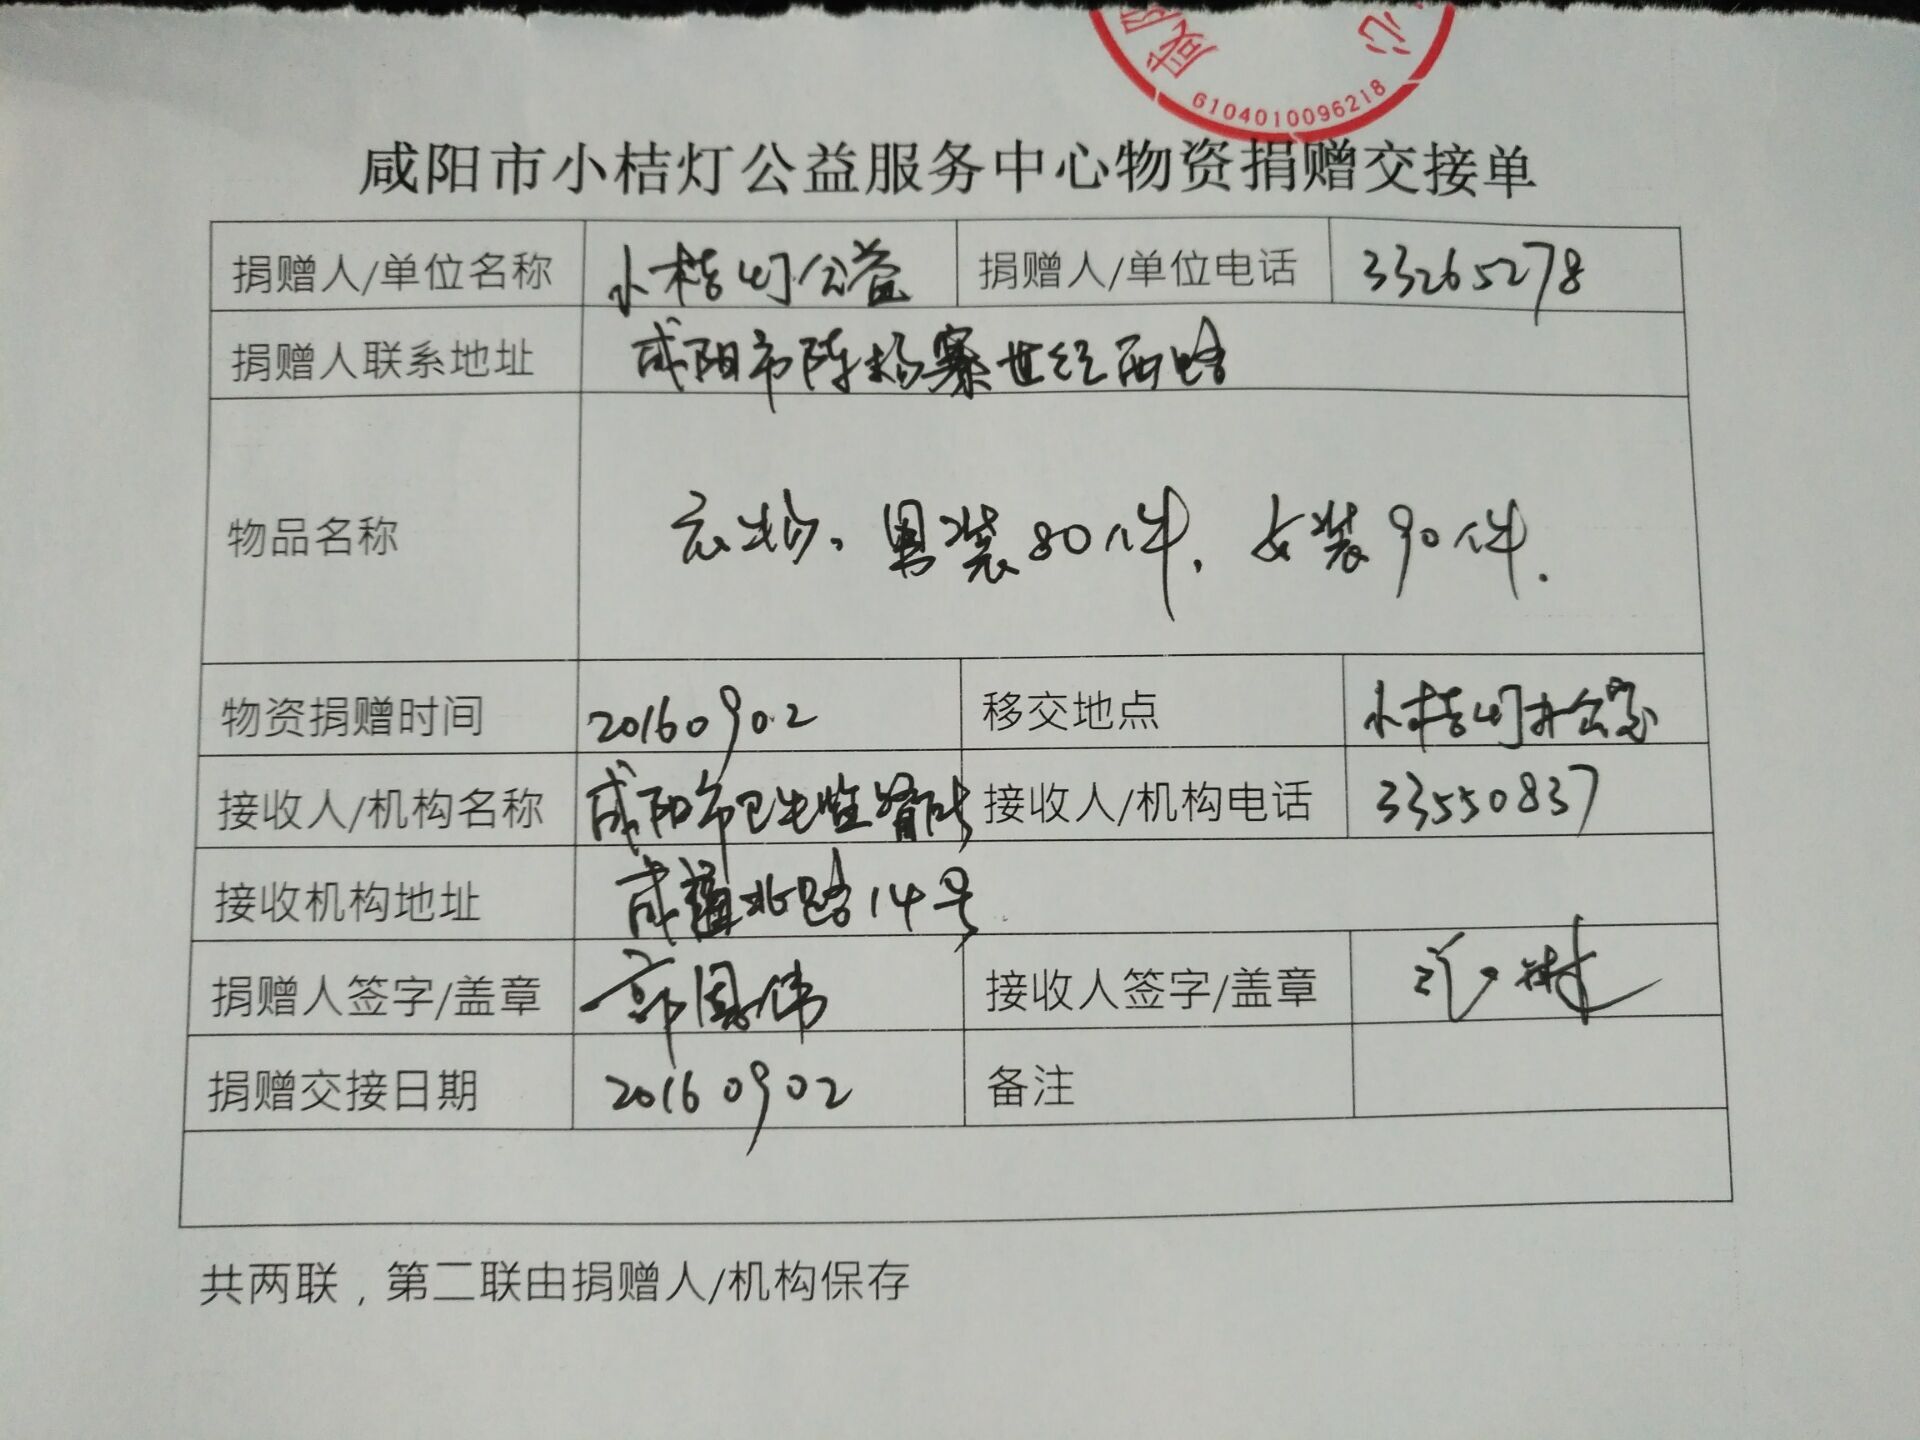 咸阳 心
6104010096218
咸阳市小桔灯公益服务中心物资捐赠交接单
捐赠人/单位名称 小桔灯公益 捐赠人/单位电话 33265278
捐赠人联系地址 咸阳市陈杨寨世纪西路
物品名称 衣物、男装80件, 女装90件.
物资捐赠时间 20160902 移交地点 小桔灯办公室
接收人/机构名称 咸阳市卫生监督所 接收人/机构电话 33550837
接收机构地址 咸通北路14号
捐赠人签字/盖章 郭周伟 接收人签字/盖章
捐赠交接日期 20160902 备注
共两联，第二联由捐赠人/机构保存